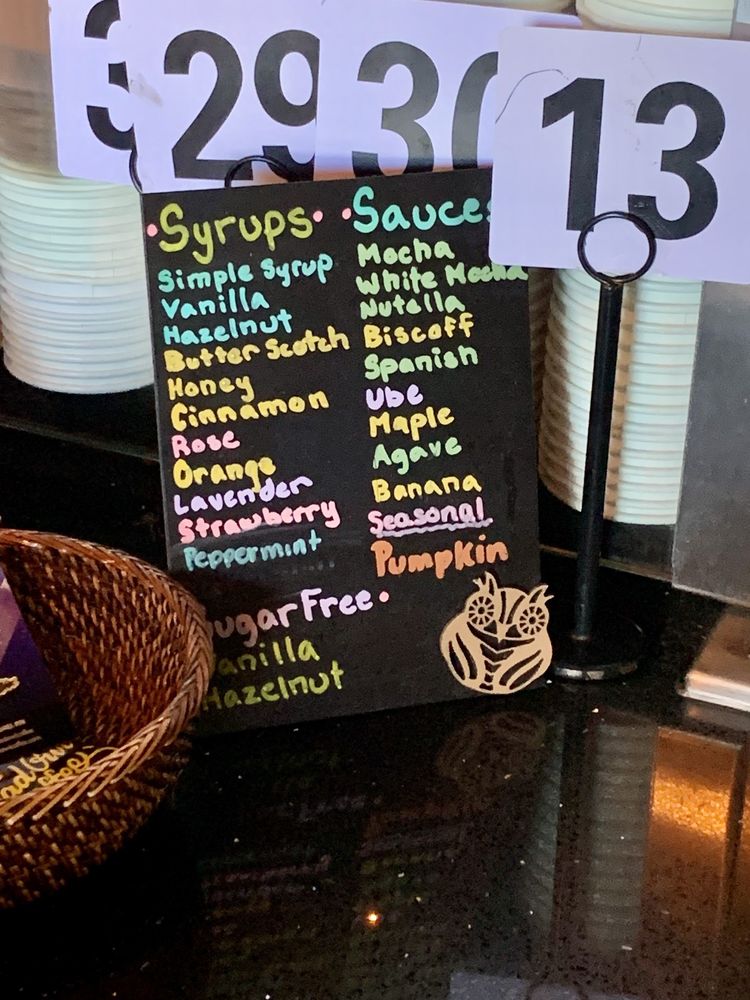 29
30
13
Syrups
Simple Syrup
Vanilla
Hazelnut
Butter Scotch
Honey
Cinnamon
Rose
Orange
Lavender
Strawberry
Peppermint
Sauces
Mocha
White Mocha
Nutella
Biscoff
Spanish
Ube
Maple
Agave
Banana
Seasonal
Pumpkin
Sugar Free
Vanilla
Hazelnut